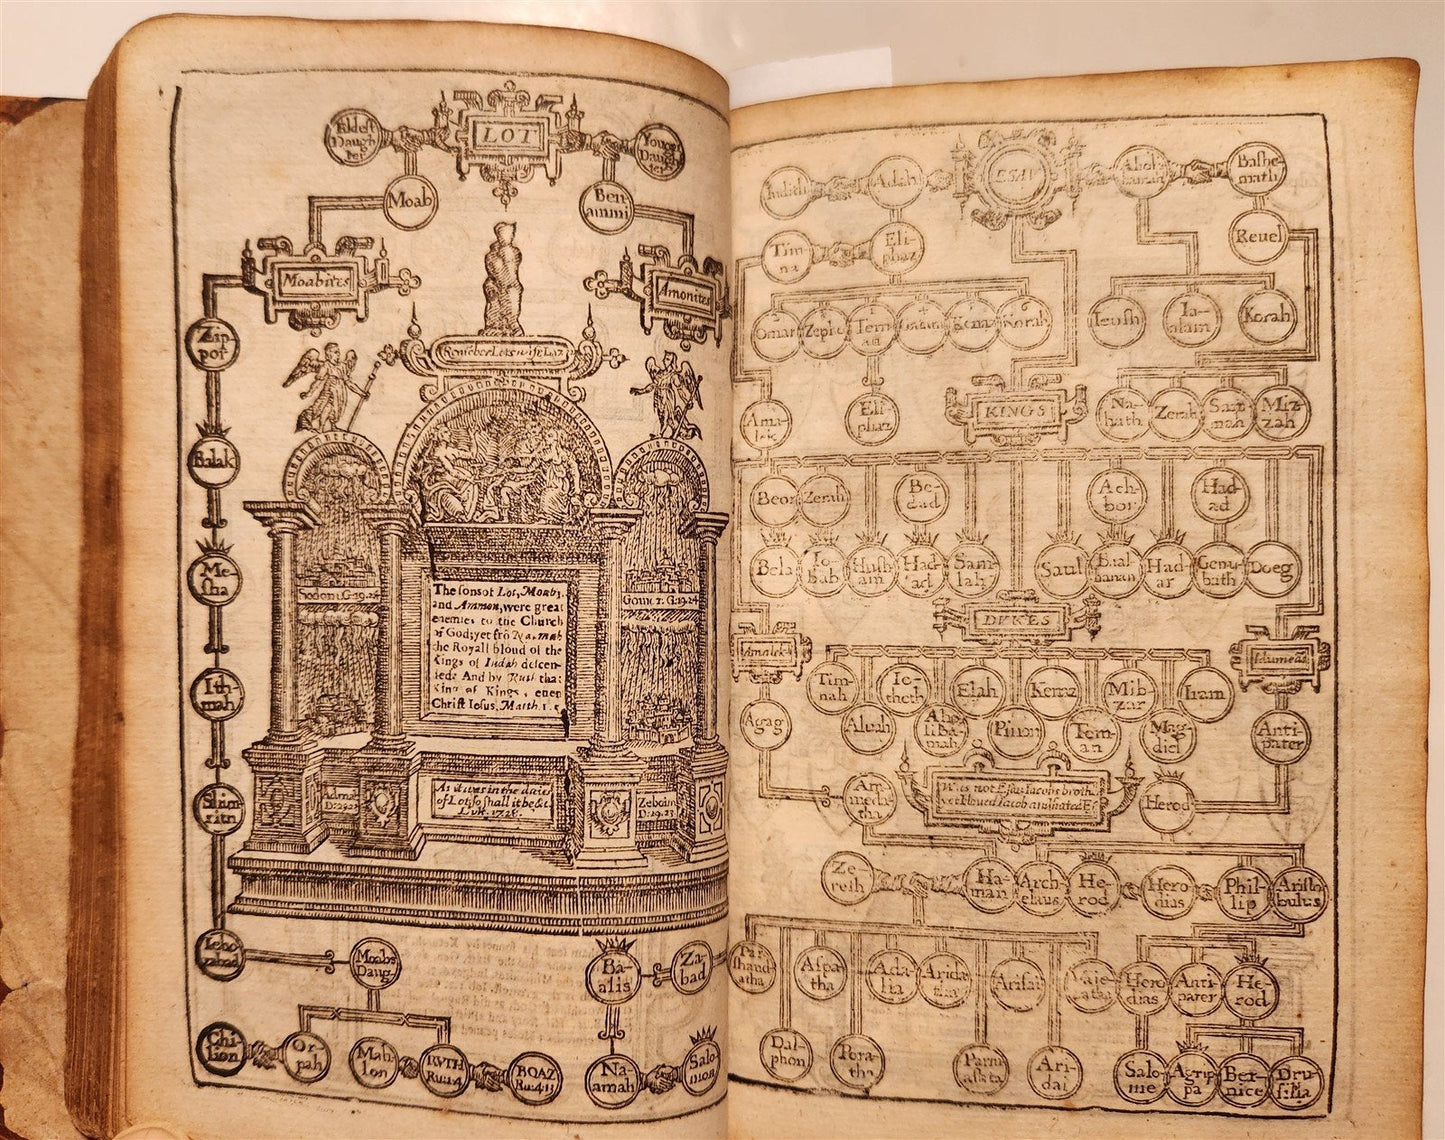 Eldest
Daugh
ter
LOT
Daugh
ter
Moab
Ben
ammi
Moabites
Amonites
Zip
por
Balak
Me-
sha
Ith
mah
Jeho
zabad
Sodom. G. 19. 24
G. 19. 24
The sons of Lot, Moab,
and Ammon, were great
enemies to the Church
of God; yet frō Naamah
the Royall bloud of the
Kings of Iudah descen-
ded: And by Ruth that
King of Kings, euen
Christ Iesus, Matth. 1. 5
As it was in the daies
of Lot, so shall it be &c.
Luk. 17. 28.
Admah
D. 29. 23
Zeboim
D. 29. 23
Moabs
Daug
Ba-
alis
Za
bad
Chi-
lion
Or
pah
Mah
lon
RVTH
Ru: 1 4
BOAZ
Ru: 4 13
Na-
amah
Salo
mon
Iudith
Adah
ESAV
Aholi
bamah
Bashe-
math
Tim-
na
Eli-
phaz
Reuel
Omar
Zepho
Tem
an
Gatam
Kenaz
Korah
Ieush
Ia-
alam
Korah
Ama-
lek
Eli-
phaz
KINGS
Na-
hath
Zerah
Sam
mah
Miz
zah
Beor
Zerah
Be-
dad
Ach-
bor
Had-
ad
Bela
Io-
bab
Hush
am
Had-
ad
Sam
lah
Saul
Baal
hanan
Had-
ar
Doeg
DVKES
Amaleks
Tim-
nah
Ie-
theth
Elah
Kenaz
Mib-
zar
Iram
Agag
Aluah
Aho
liba-
mah
Pinon
Tem-
an
Mag-
diel
Anti-
pater
Am-
meda-
tha
Was not Esau Iacobs broth
yet I loued Iacob and hated Es
Herod
Ze-
resh
Ha-
man
Arch-
elaus
He-
rod
Hero
dias
Phil-
lip
Aristo
bulus
Par
shand
atha
Aspa-
tha
Ada-
lia
Arida
tha
Arisai
Vaje-
zatha
Hero-
dias
Anti-
pater
He-
rod
Dal-
phon
Pora-
tha
Parm
asata
Ari-
dai
Salo-
me
Agrip
pa
Ber-
nice
Dru-
silla